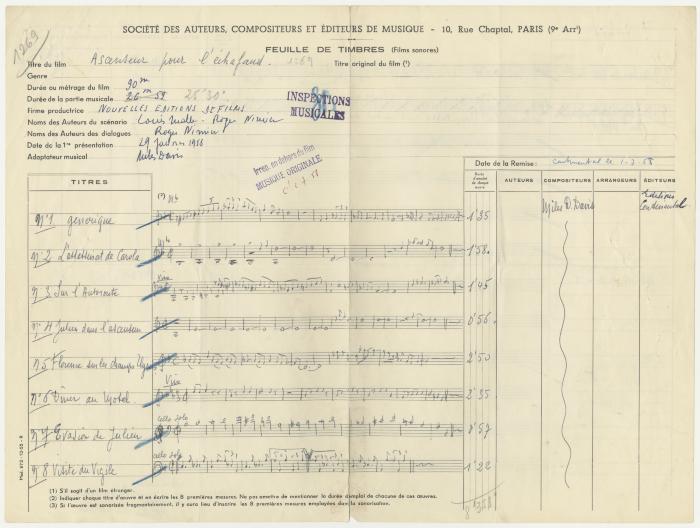 1269
SOCIÉTÉ DES AUTEURS, COMPOSITEURS ET ÉDITEURS DE MUSIQUE - 10, Rue Chaptal, PARIS (9e Arrt)
FEUILLE DE TIMBRES (Films sonores)
Titre du film Ascenseur pour l'échafaud. 1269 Titre original du film (1)
Genre
Durée ou métrage du film 90m
Durée de la partie musicale 26m 59 25'30"
Firme productrice NOUVELLES EDITIONS DE FILMS
Noms des Auteurs du scénario Louis Malle - Roger Nimier
Noms des Auteurs des dialogues Roger Nimier
Date de la 1re présentation 29 janvier 1958
Adaptateur musical Miles Davis
INSPECTIONS
MUSICALES
MUSIQUE ORIGINALE
Date de la Remise : 1-7-58
TITRES
(2)
Durée d'audition de chaque œuvre
AUTEURS
COMPOSITEURS
ARRANGEURS
ÉDITEURS
n°1 générique 1'35 Miles D. Davis Editions Continental
n°2 L'assassinat de Carala 1'58
n°3 Sur l'Autoroute Vive 1'45
n°4 Julien dans l'ascenseur 0'56
n°5 Florence sur les champs Elys 2'50
n°6 Diner au Motel Vive 2'35
n°7 Evasion de Julien cello solo 0'57
n°8 Visite du Vigile cello solo 1'22
(1) S'il sagit d'un film étranger.
(2) Indiquer chaque titre d'œuvre et en écrire les 8 premières mesures. Ne pas omettre de mentionner la durée d'emploi de chacune de ces œuvres.
(3) Si l'œuvre est sonorisée fragmentairement, il y aura lieu d'inscrire les 8 premières mesures employées dans la sonorisation.